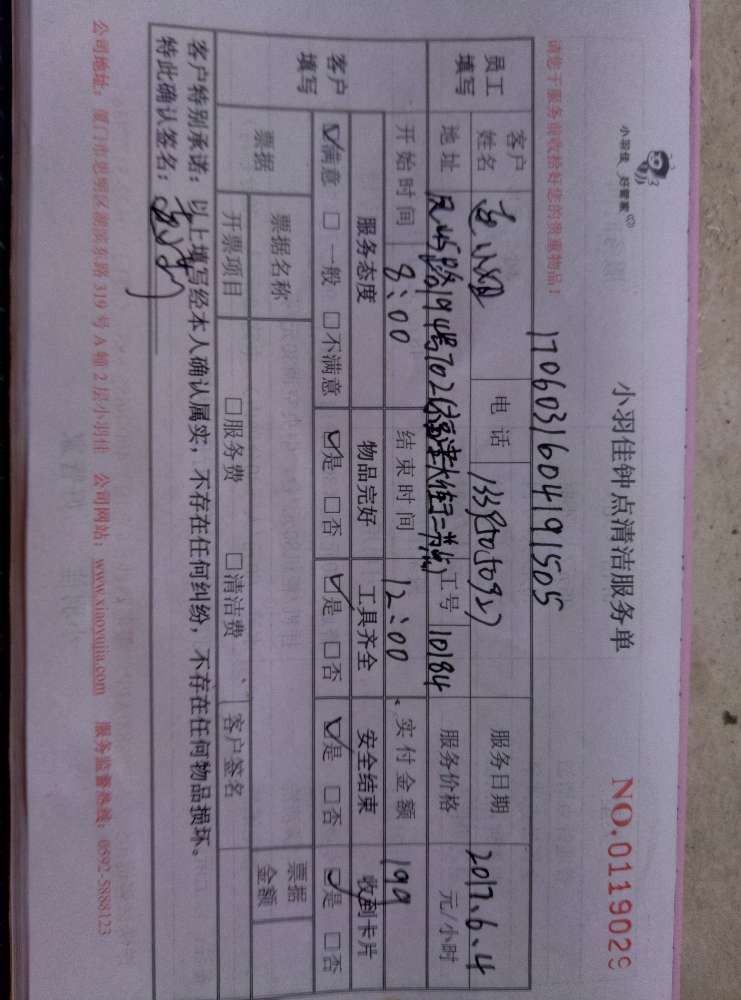 小羽佳 好管家
小羽佳钟点清洁服务单
NO.0119029
17060316041915​05
请您于服务前收拾好您的贵重物品！
员工填写 客户姓名 电话 服务日期 2017.6.4
地址 702 工号 10184 服务价格 元/小时
开始时间 8:00 结束时间 12:00 实付金额 199
客户填写 服务态度 物品完好 工具齐全 安全结束 收到卡片
☑满意 □一般 □不满意 ☑是 □否 ☑是 □否 ☑是 □否 ☑是 □否
票据 票据名称 票据金额
开票项目 □服务费 □清洁费 客户签名
客户特别承诺：以上填写经本人确认属实，不存在任何纠纷，不存在任何物品损坏。
特此确认签名：
公司地址：厦门市思明区湖滨东路319号A幢2层小羽佳 公司网站：www.xiaoyujia.com 服务监督热线：0592-5888123